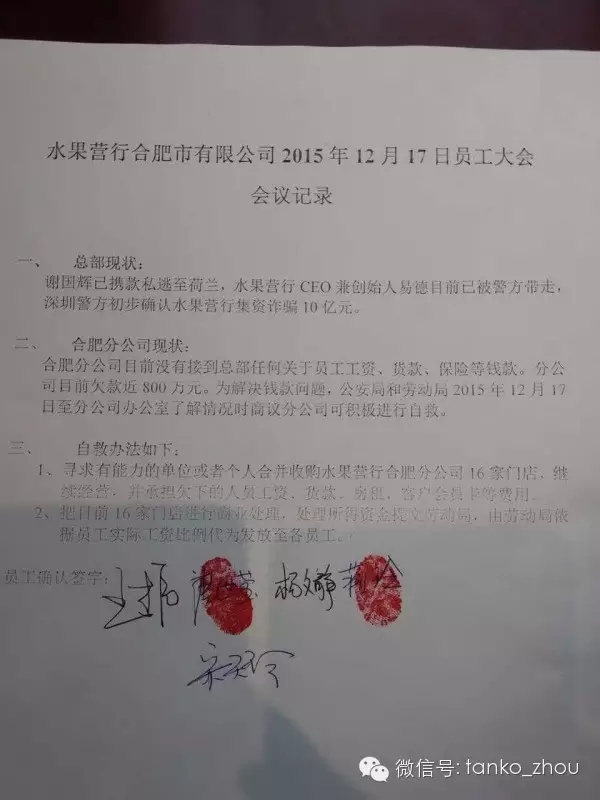 水果营行合肥市有限公司2015年12月17日员工大会
会议记录
一、 总部现状：
谢国辉已携款私逃至荷兰，水果营行CEO兼创始人易德目前已被警方带走，
深圳警方初步确认水果营行集资诈骗10亿元。
二、 合肥分公司现状：
合肥分公司目前没有接到总部任何关于员工工资、货款、保险等钱款。分公
司目前欠款近800万元。为解决钱款问题，公安局和劳动局2015年12月17
日至分公司办公室了解情况时商议分公司可积极进行自救。
三、 自救办法如下：
1、寻求有能力的单位或者个人合并收购水果营行合肥分公司16家门店，继
续经营，并承担欠下的人员工资、货款、房租，客户会员卡等费用。
2、把目前16家门店进行商业处理，处理所得资金提交劳动局，由劳动局依
据员工实际工资比例代为发放至各员工。
员工确认签字：
微信号: tanko_zhou